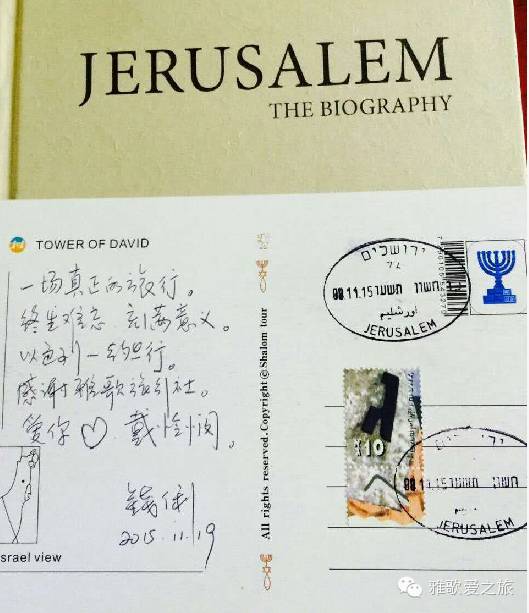 JERUSALEM
THE BIOGRAPHY
TOWER OF DAVID
一场真正的旅行。
终生难忘 刻满意义。
以色列一约旦行。
感谢雅歌旅行社。
爱你 戴
2015.11.19
Israel view
All rights reserved.Copyright©Shalom tour
ירושלים
72
08.11.15 חשון תשע"ו
اورشليم
JERUSALEM
10
ירושלים
08.11.15 חשון
اورشليم
JERUSALEM
雅歌爱之旅